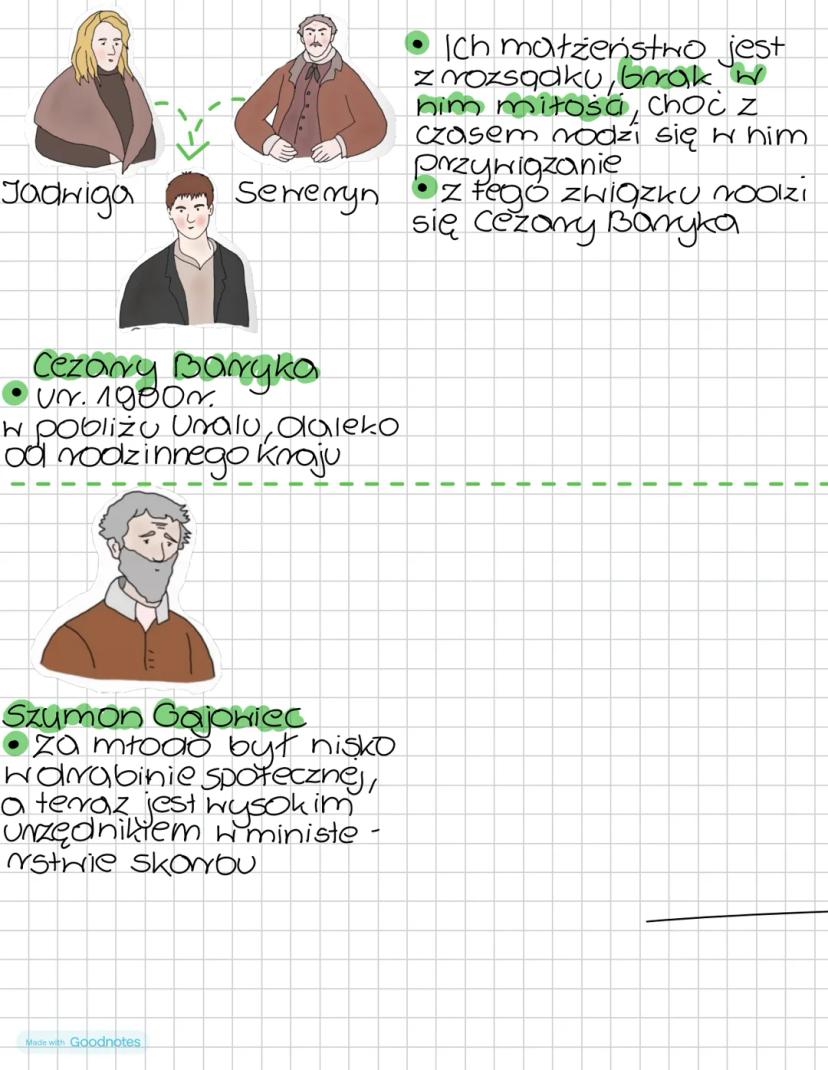 Jadwiga
Seweryn
• Ich małżeństwo jest
z rozsądku, brak w
nim miłości, choć z
czasem rodzi się w nim
przywiązanie
• z tego związku rodzi
się Cezary Baryka
Cezary Baryka
• ur. 1900r.
w pobliżu Uralu, daleko
od rodzinnego kraju
Szymon Gajowiec
• za młodo był nisko
w drabinie społecznej,
a teraz jest wysokim
urzędnikiem w ministe -
rstwie skarbu
Made with Goodnotes